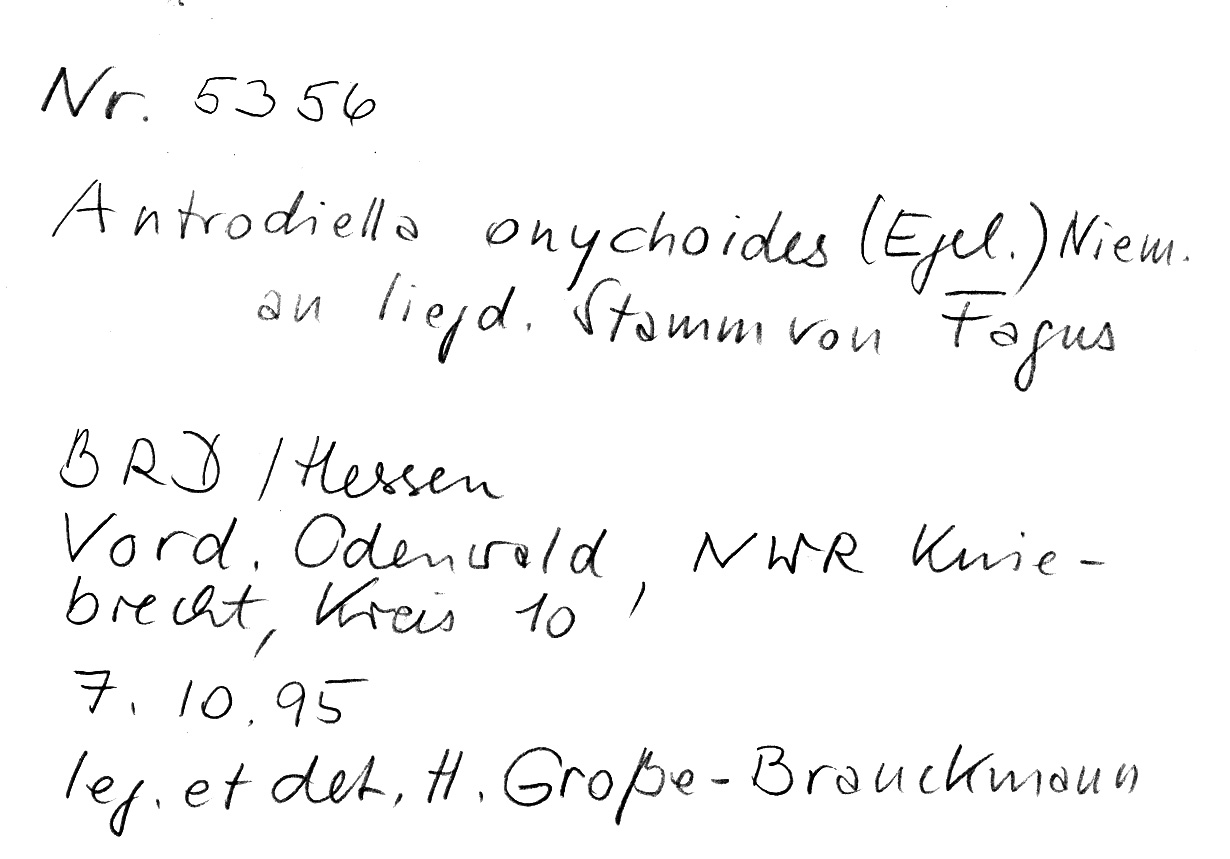 Nr. 5356
Antrodiella onychoides (Egel.) Niem.
an liegd. Stamm von Fagus
BRD / Hessen
Vord. Odenwald, NWR Knie-
brecht, Kreis 10
7. 10. 95
leg. et det. H. Große-Brauckmann